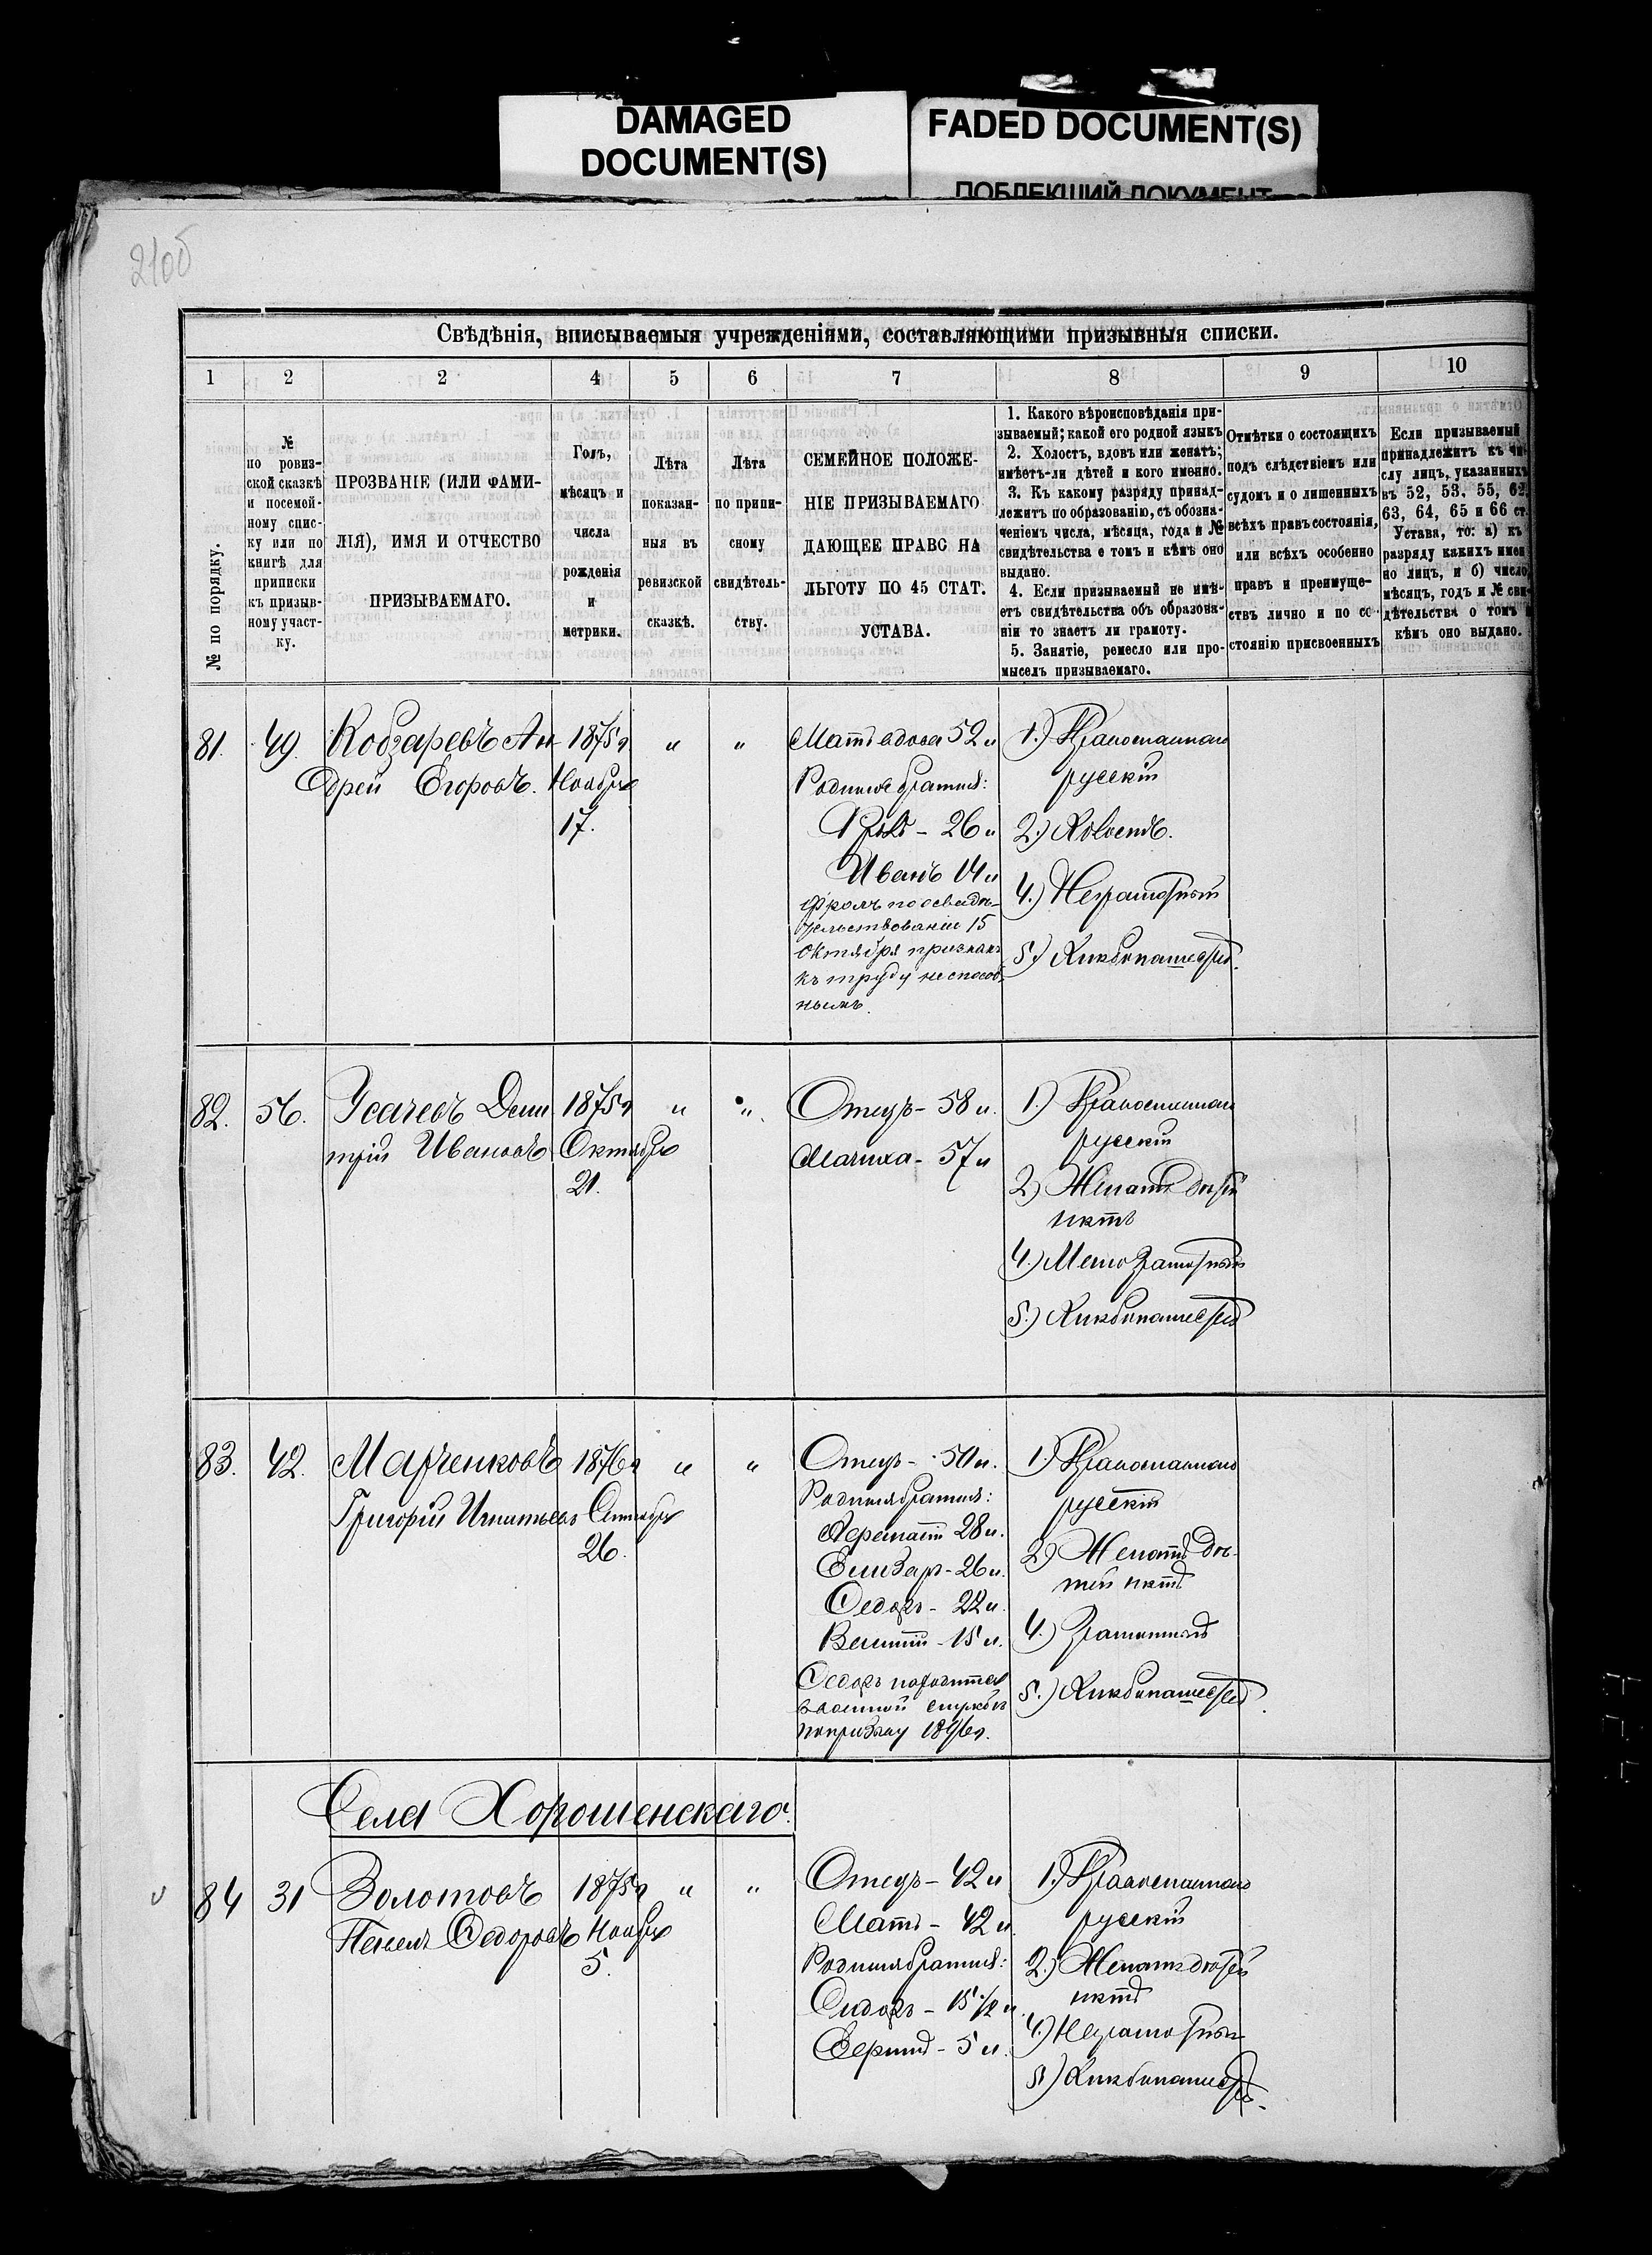 DAMAGED
DOCUMENT(S)
FADED DOCUMENT(S)
ПОБЛЕКШИЙ ДОКУМЕНТ
210б
Свѣдѣнія, вписываемыя учрежденіями, составляющими призывныя списки.
1 2 2 4 5 6 7 8 9 10
№ по порядку.
№
по ревиз-
ской сказкѣ
и посемей-
ному спис-
ку или по
книгѣ для
приписки
къ призыв-
ному участ-
ку.
ПРОЗВАНІЕ (ИЛИ ФАМИ-
ЛІЯ), ИМЯ И ОТЧЕСТВО
ПРИЗЫВАЕМАГО.
Годъ,
мѣсяцъ и
числа
рожденія
и
метрики.
Лѣта
показан-
ныя въ
ревизской
сказкѣ.
Лѣта
по припи-
сному
свидѣтель-
ству.
СЕМЕЙНОЕ ПОЛОЖЕ-
НІЕ ПРИЗЫВАЕМАГО
ДАЮЩЕЕ ПРАВО НА
ЛЬГОТУ ПО 45 СТАТ.
УСТАВА.
1. Какого вѣроисповѣданія при-
зываемый; какой его родной языкъ
2. Холостъ, вдовъ или женатъ;
имѣетъ-ли дѣтей и кого именно.
3. Къ какому разряду принад-
лежитъ по образованію, съ обозна-
ченіемъ числа, мѣсяца, года и №
свидѣтельства о томъ и кѣмъ оно
выдано.
4. Если призываемый не имѣ-
етъ свидѣтельства объ образова-
ніи то знаетъ ли грамоту.
5. Занятіе, ремесло или про-
мыселъ призываемаго.
Отмѣтки о состоящихъ
подъ слѣдствіемъ или
судомъ и о лишенныхъ
всѣхъ правъ состоянія,
или всѣхъ особенно
правъ и преимуще-
ствъ лично и по со-
стоянію присвоенныхъ
Если призываемый
принадлежитъ къ чи-
слу лицъ, указанныхъ
въ 52, 53, 55, 62,
63, 64, 65 и 66 ст.
Устава, то: а) къ
разряду какихъ имен
но лицъ, и б) число,
мѣсяцъ, годъ и № сви-
дѣтельства о томъ и
кѣмъ оно выдано.
81. 49. Кобзаревъ Ан-
дрей Егоровъ.
1875 г
Ноября
17.
" "
Мать вдова 52 л
Родные братья:
Фролъ - 26 л
Иванъ 14 л
Фролъ по освидѣ-
тельствованіи 15
Октября признанъ
къ труду неспособ-
нымъ.
1.) Православнаго
русскій
2.) Холостъ.
4.) Неграмотный
5.) Хлѣбопашество.
82. 56. Усачевъ Дми
трій Ивановъ
1875 г
Октября
21.
" "
Отецъ - 58 л.
Мачиха - 57 л
1.) Православнаго
русскій
2) Женатъ дѣтей
нѣтъ
4.) Мало грамотный
5.) Хлѣбопашество
83. 42. Марченковъ
Григорій Игнатьевъ
1876 г
Сентября
26.
" "
Отецъ - 50 л.
Родные братья:
28 л.
Елизаръ - 26 л.
Федоръ - 22 л.
15 л.
Федоръ находится
в военной службѣ
по призыву 1896 г.
1.) Православнаго
русскій
2) Женатъ дѣ-
тей нѣтъ
4.) Грамотный
5.) Хлѣбопашество.
Села Хорошенскаго.
84 31 Золотовъ
Павелъ Федоровъ
1875 г
Ноября
5.
" "
Отецъ - 42 л
Мать - 42 л
Родные братья:
Сидоръ - 15 1/2 л.
5 л.
1.) Православнаго
русскій
2.) Женатъ дѣтей
нѣтъ
4.) Неграмотный
5) Хлѣбопашество.